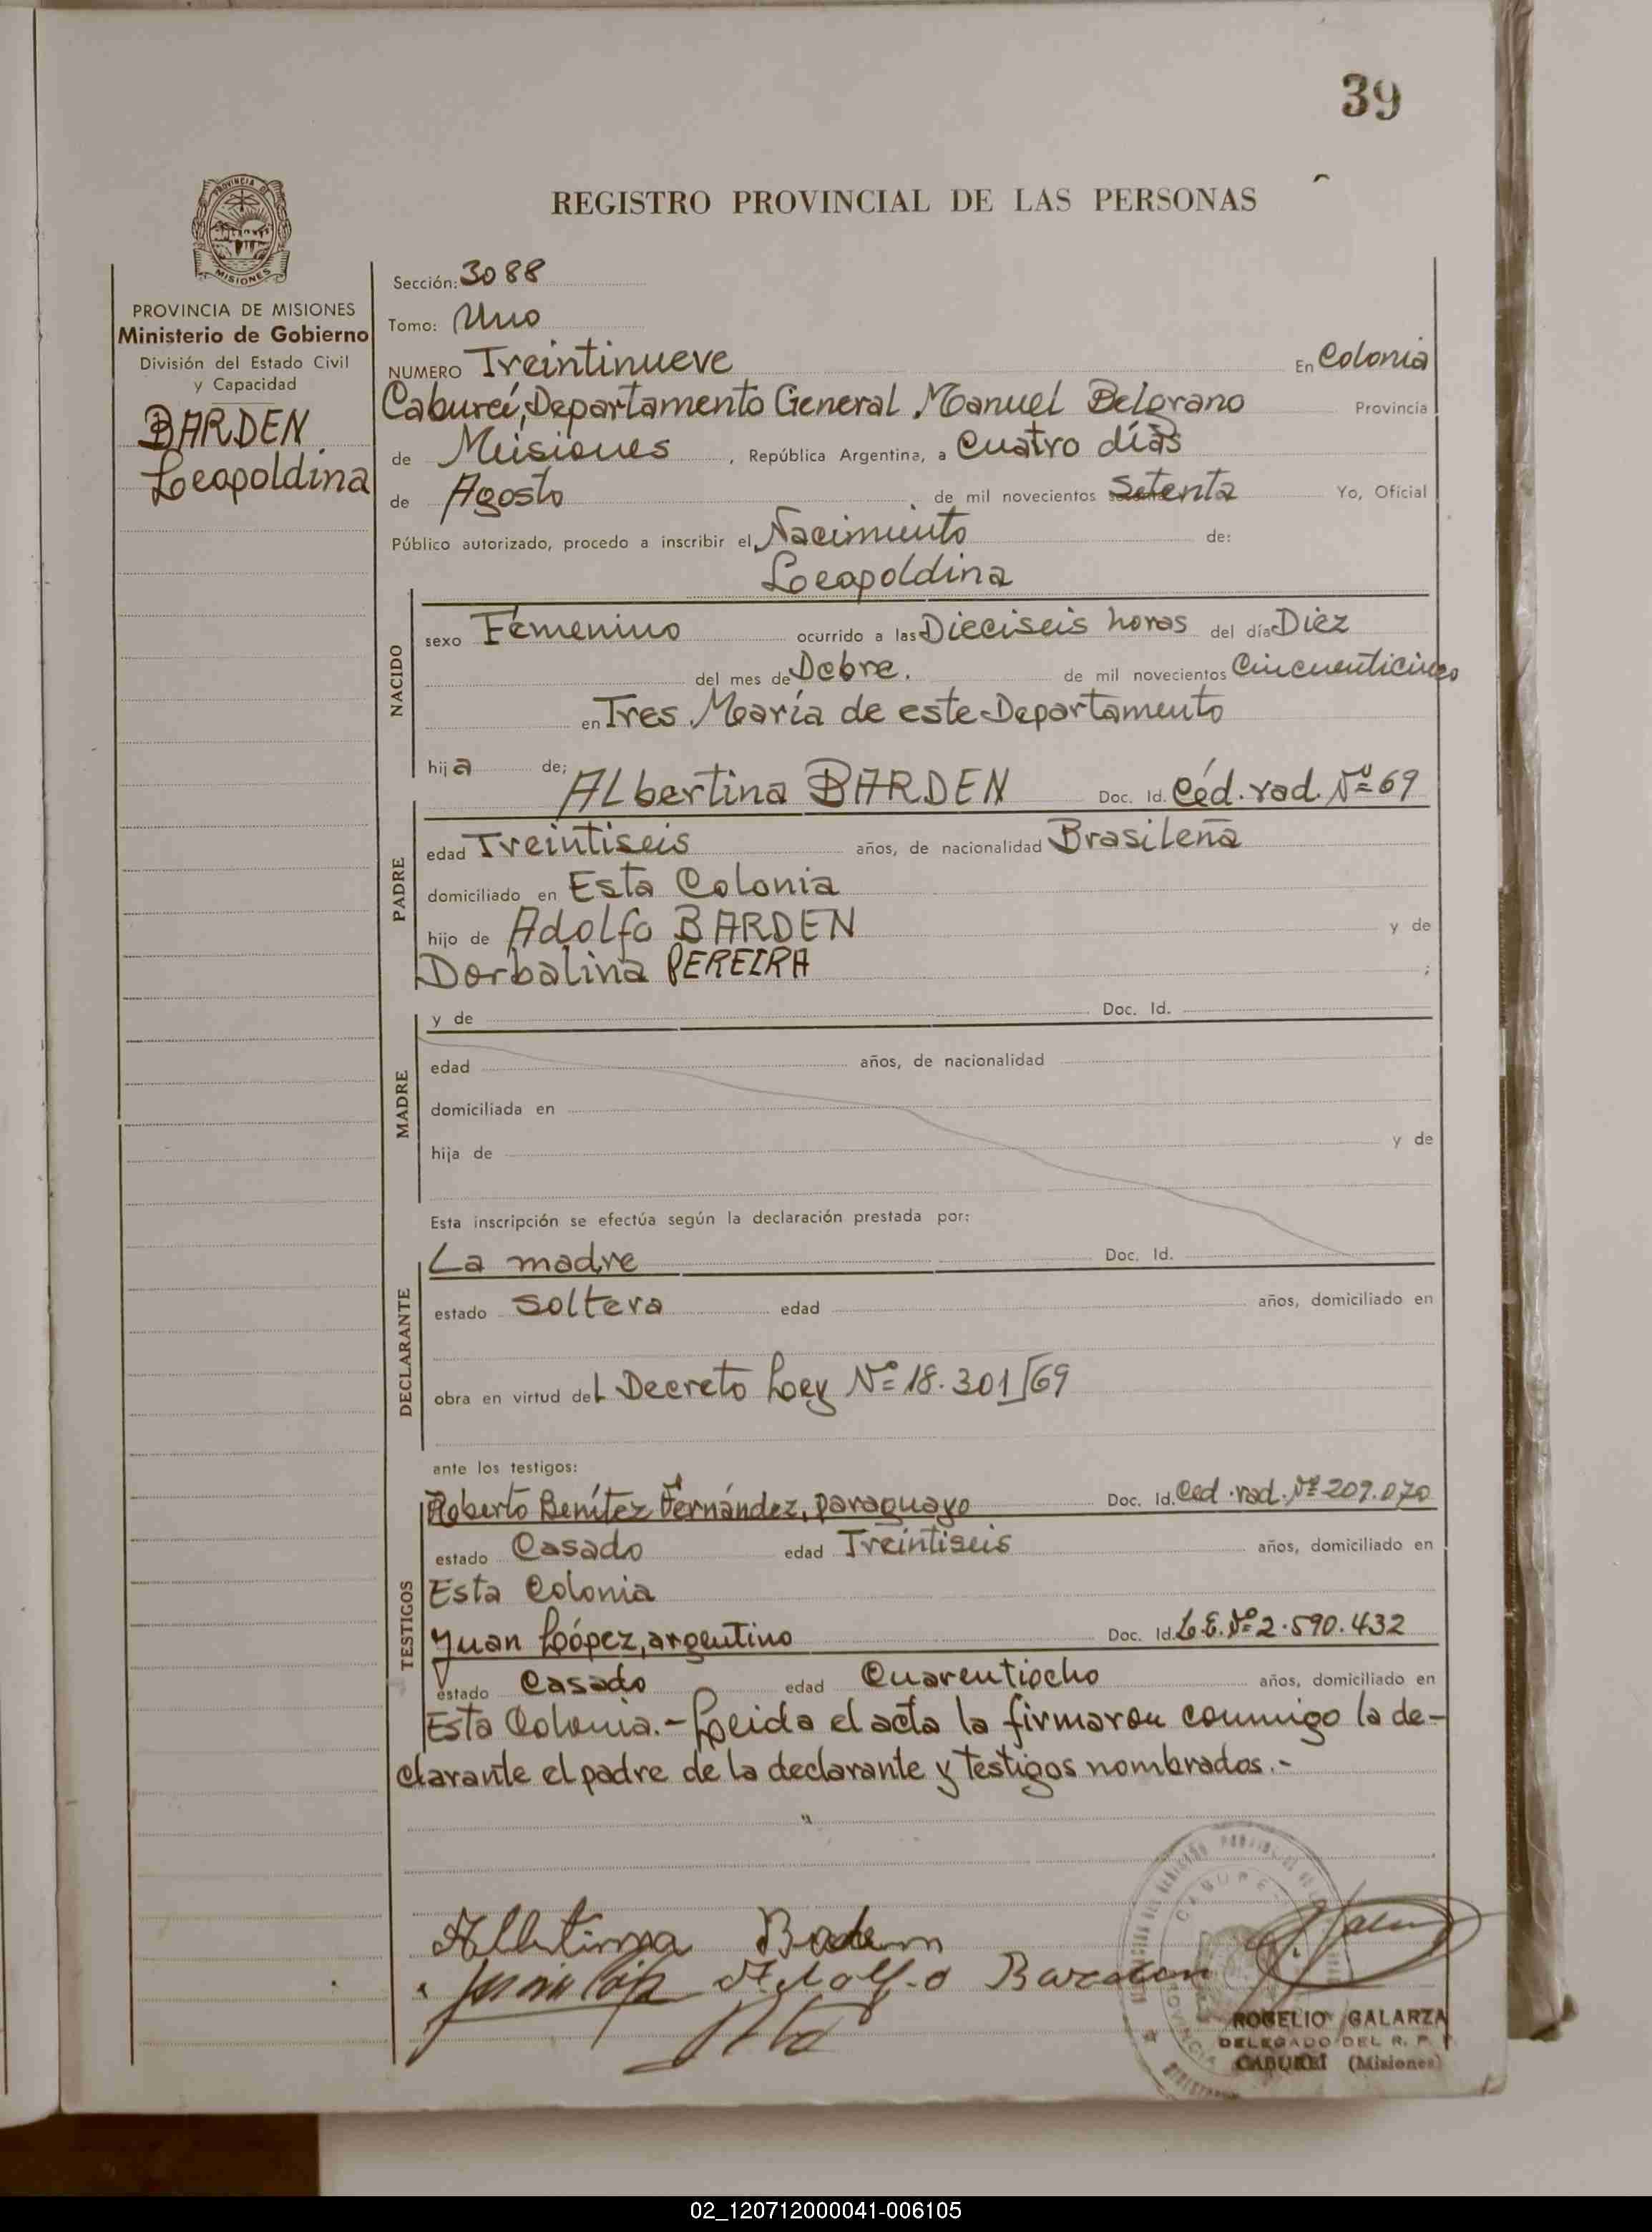 39
REGISTRO PROVINCIAL DE LAS PERSONAS
PROVINCIA DE MISIONES
PROVINCIA DE MISIONES
Ministerio de Gobierno
División del Estado Civil
y Capacidad
BARDEN
Leopoldina
Sección: 3088
Tomo: Uno
NUMERO Treintinueve En Colonia
Cabureí, Departamento General Manuel Belgrano Provincia
de Misiones, República Argentina, a Cuatro días
de Agosto de mil novecientos Setenta Yo, Oficial
Público autorizado, procedo a inscribir el Nacimiento de:
Leopoldina
NACIDO
sexo Femenino ocurrido a las Dieciseis horas del día Diez
del mes de Dcbre. de mil novecientos Cincuenticinco
en Tres María de este Departamento
hija de;
Albertina BARDEN Doc. Id. Céd. rad. Nº 69
PADRE
edad Treintiseis años, de nacionalidad Brasileña
domiciliado en Esta Colonia
hijo de Adolfo BARDEN y de
Dorbalina PEREIRA ;
MADRE
y de Doc. Id.
edad años, de nacionalidad
domiciliada en
hija de y de
Esta inscripción se efectúa según la declaración prestada por:
DECLARANTE
La madre Doc. Id.
estado Soltera edad años, domiciliado en
obra en virtud del Decreto Ley Nº 18.301/69
ante los testigos:
TESTIGOS
Roberto Benítez Fernández, paraguayo Doc. Id. Ced. rad. Nº 207.070
estado Casado edad Treintiseis años, domiciliado en
Esta Colonia
Juan López, argentino Doc. Id. L.E. Nº 2.590.432
estado Casado edad Cuarentiocho años, domiciliado en
Esta Colonia.- Leida el acta la firmaron conmigo la de-
clarante el padre de la declarante y testigos nombrados.-
Albertina Barden
Adolfo Barden
ROGELIO GALARZA
DELEGADO DEL R. P.
CABUREÍ (Misiones)
02_120712000041-006105